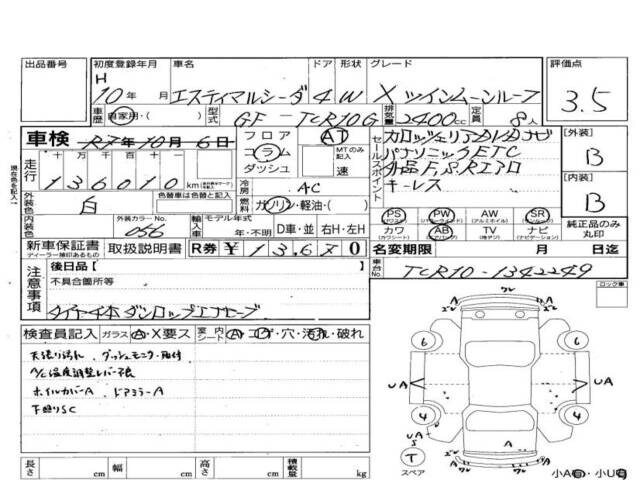 出品番号 初度登録年月 車名 ドア 形状 グレード 評価点
H 10年 月 エスティマルシーダ 4 W X ツインムーンルーフ 3.5
車歴 自家用・( ) 型式 GF-TCR10G 排気量 2400cc 定員 8人
車検 R7年10月6日 フロア AT セールスポイント カロッツェリアナビ 【外装】
走行 十万 万 千 百 十 一 コラム MTのみ記入 パナソニックETC B
136010 km ダッシュ 速 外品F.S.Rエアロ 【内装】
外装色 白 冷房 AC キーレス B
内装色 外装カラーNo. 056 燃料 ガソリン・軽油・( ) PS PW AW SR
色替車は色替と記入
輸入車 モデル年式 年・不明 D車・並 右H・左H カワ AB TV ナビ 純正品のみ丸印
新車保証書 取扱説明書 R券 ¥ 13,670 名変期限 月 日迄
ディーラー捺印あるもの
注意事項 後日品【 】 車台No. TCR10-1342249
不具合箇所等 ロック車
タイヤ4本ダンロップエナセーブ
検査員記入 ガラス A・X要ス 室内シート A・コゲ・穴・汚れ・破れ
天張り汚れ、ダッシュモニター取付
A/C温度調整レバー不良
ホイルカバーA、ドアミラーA
下廻りSC
長さ cm 幅 cm 高さ cm 積載量 kg
6 6
UA UA
4 4
UA
S
T
スペア
A
小A・小U